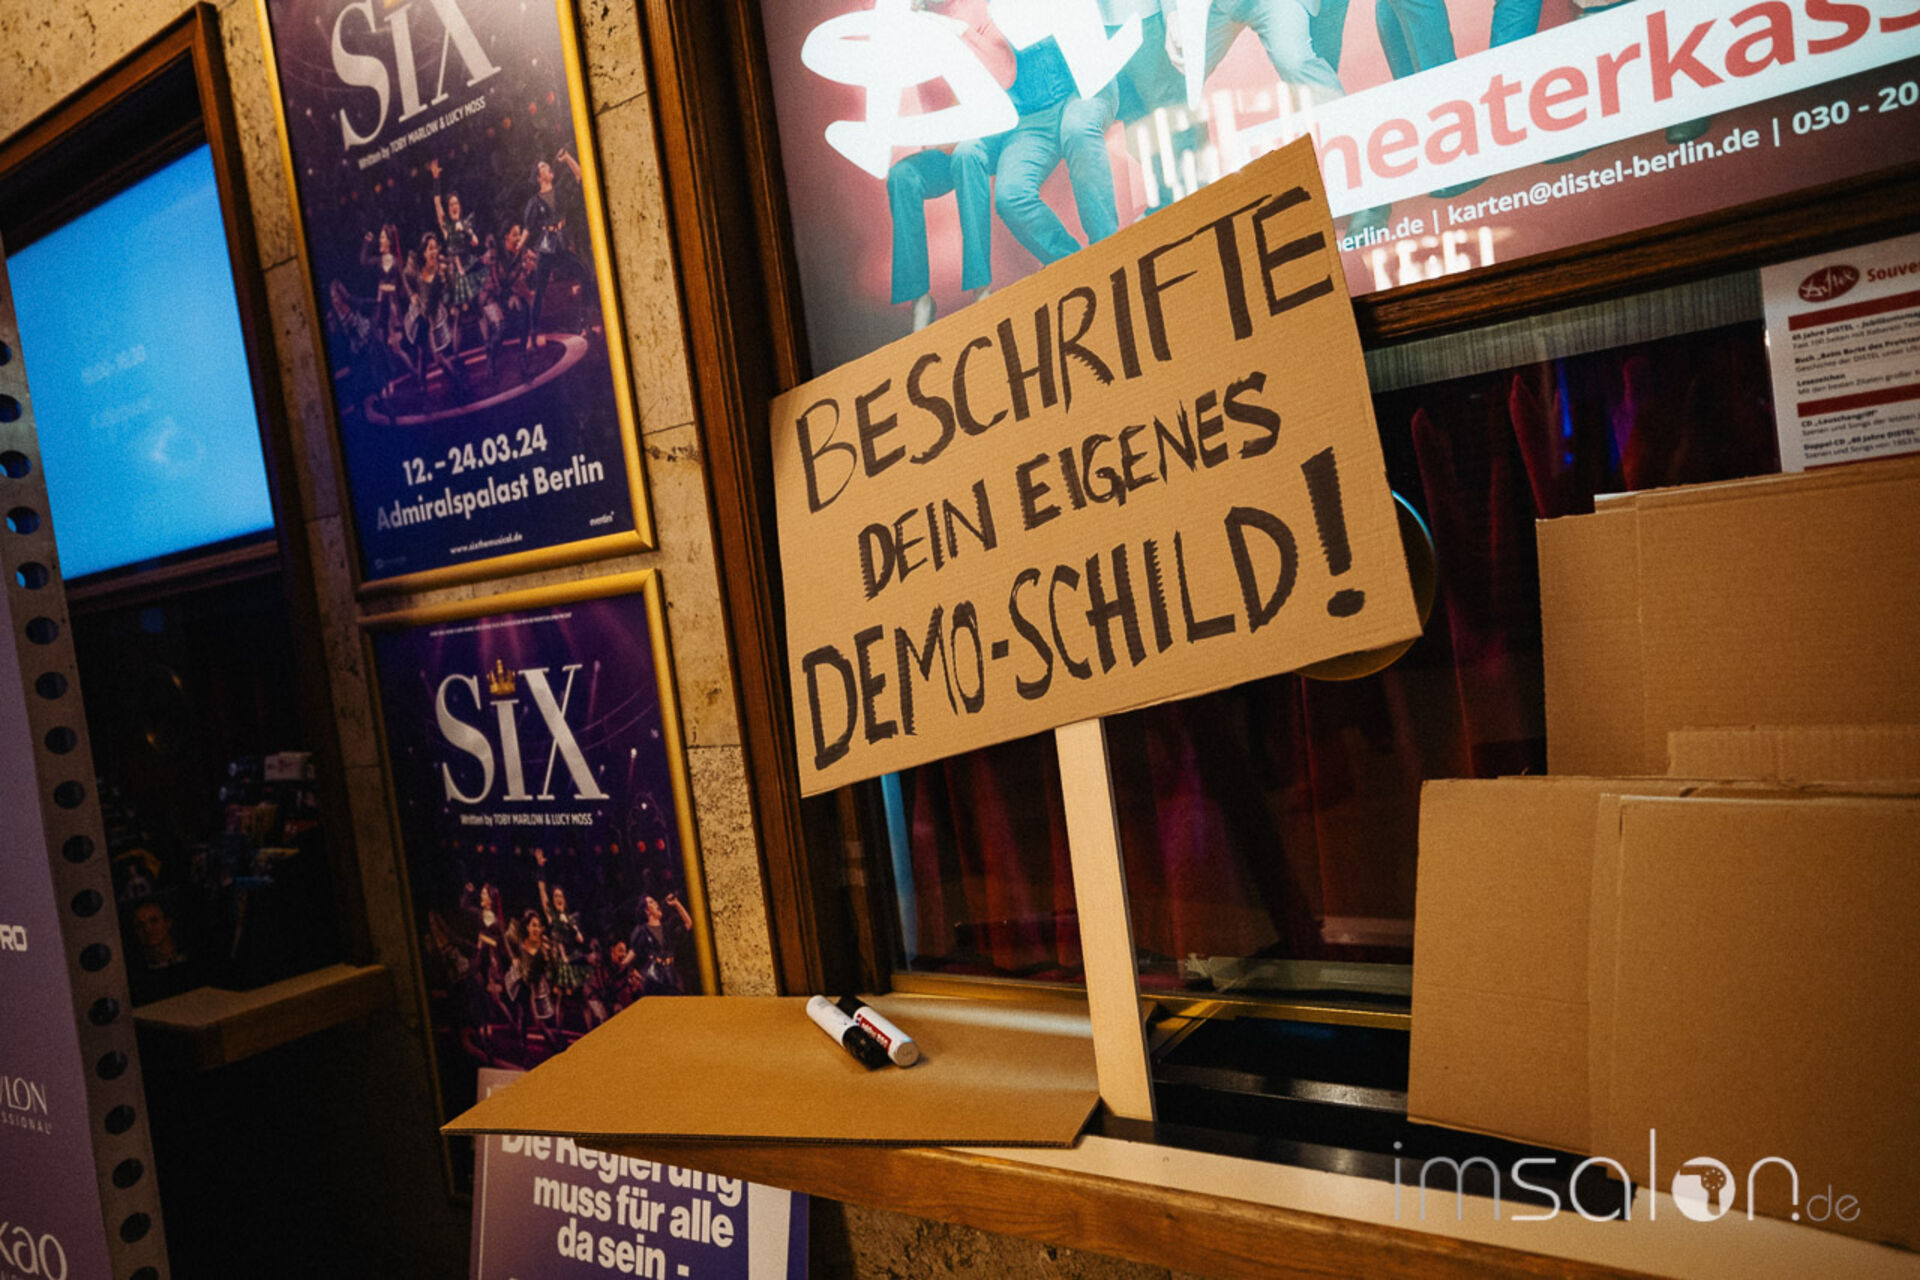 SIX
Written by TOBY MARLOW & LUCY MOSS
12. - 24.03.24
Admiralspalast Berlin
www.sixthemusical.de
SIX
Written by TOBY MARLOW & LUCY MOSS
heaterkass
erlin.de | karten@distel-berlin.de | 030 - 20
BESCHRIFTE
DEIN EIGENES
DEMO-SCHILD!
Souve
Lesezeichen
CD „Lauschangriff“
Die Regierung
muss für alle
da sein -
RO
LON
SSIONAL
kao
imsalon.de